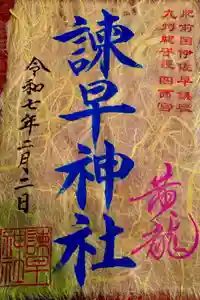 肥前国伊佐早鎮座
九州総守護四面宮
諫早神社
黄龍
令和七年二月二日
諫早
神社